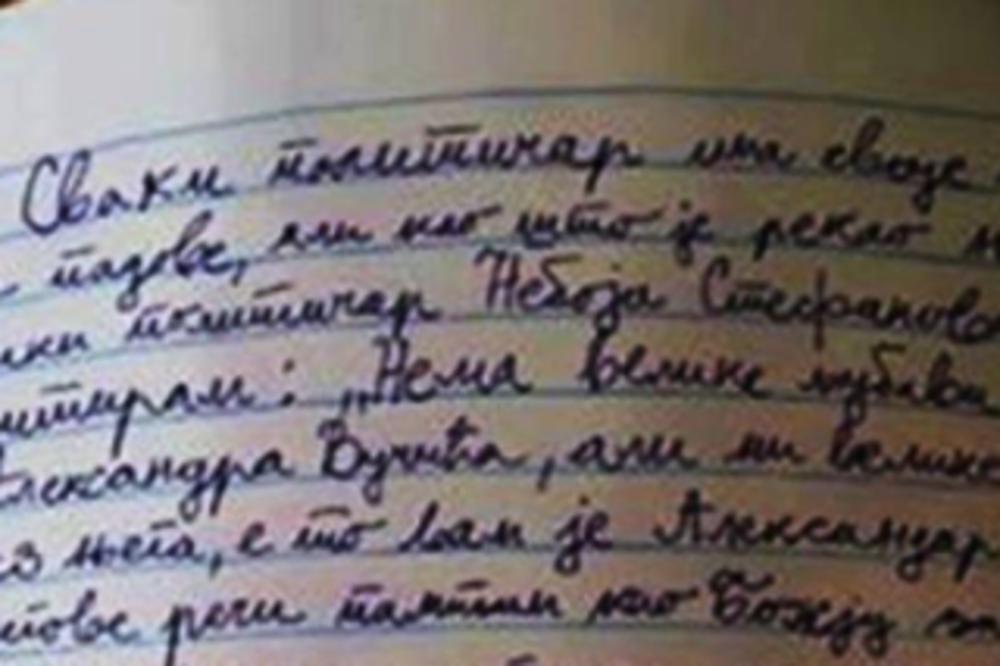 Сваки политичар има своје
падове, али као што је рекао
политичар Небојша Стефанов
: „Нема велике љубави
Александра Вучића, али ни велике
њега, е то вам је Александар
речи памтим као Божју